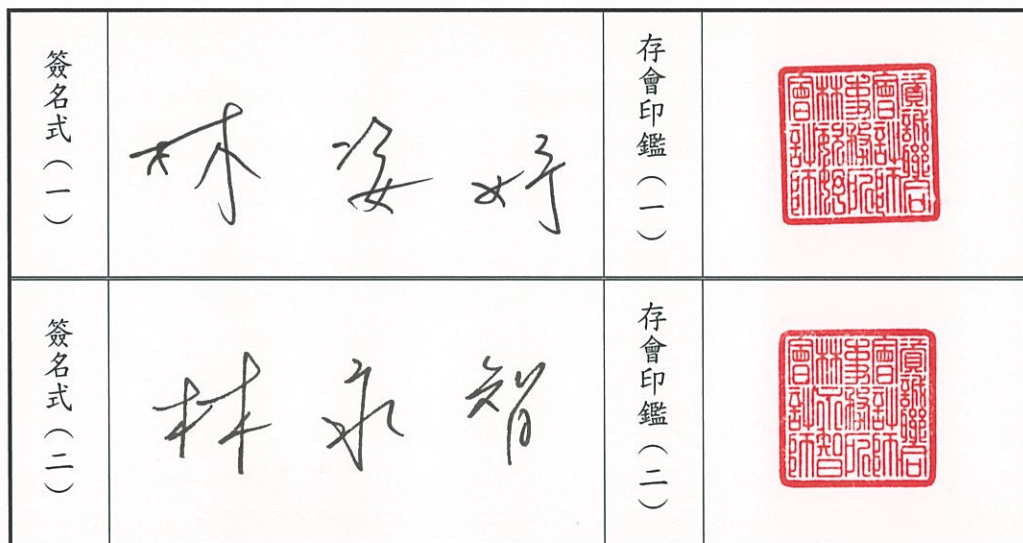 簽名式（一）
林姿妤
存會印鑑（一）
資誠聯合
會計師
事務所
林姿妤
會計師
簽名式（二）
林永智
存會印鑑（二）
資誠聯合
會計師
事務所
林永智
會計師